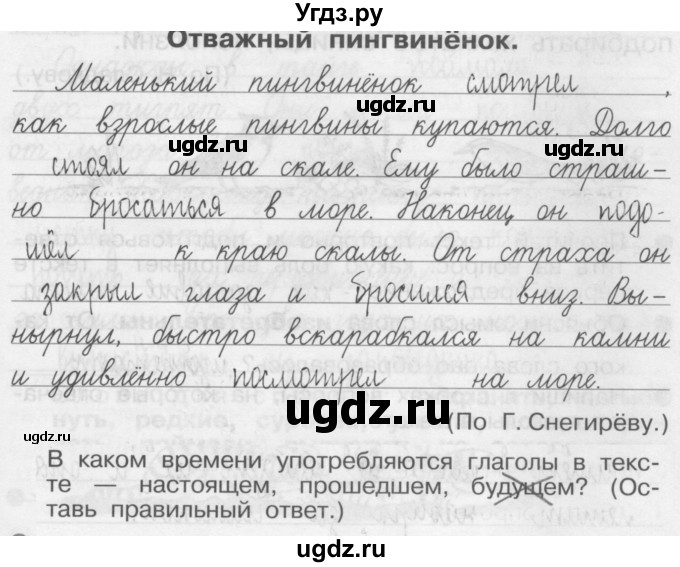 Угдз.ру
Отважный пингвинёнок.
Маленький пингвинёнок смотрел,
как взрослые пингвины купаются. Долго
стоял он на скале. Ему было страш-
но бросаться в море. Наконец, он подо-
шёл к краю скалы. От страха он
закрыл глаза и бросился вниз. Вы-
нырнул, быстро вскарабкался на камни
и удивлённо посмотрел на море.
(По Г. Снегирёву.)
В каком времени употребляются глаголы в текс-
те — настоящем, прошедшем, будущем? (Ос-
тавь правильный ответ.)
ugdz.ru
ugdz.ru
ugdz.ru
ugdz.ru
ugdz.ru
ugdz.ru
ugdz.ru
ugdz.ru